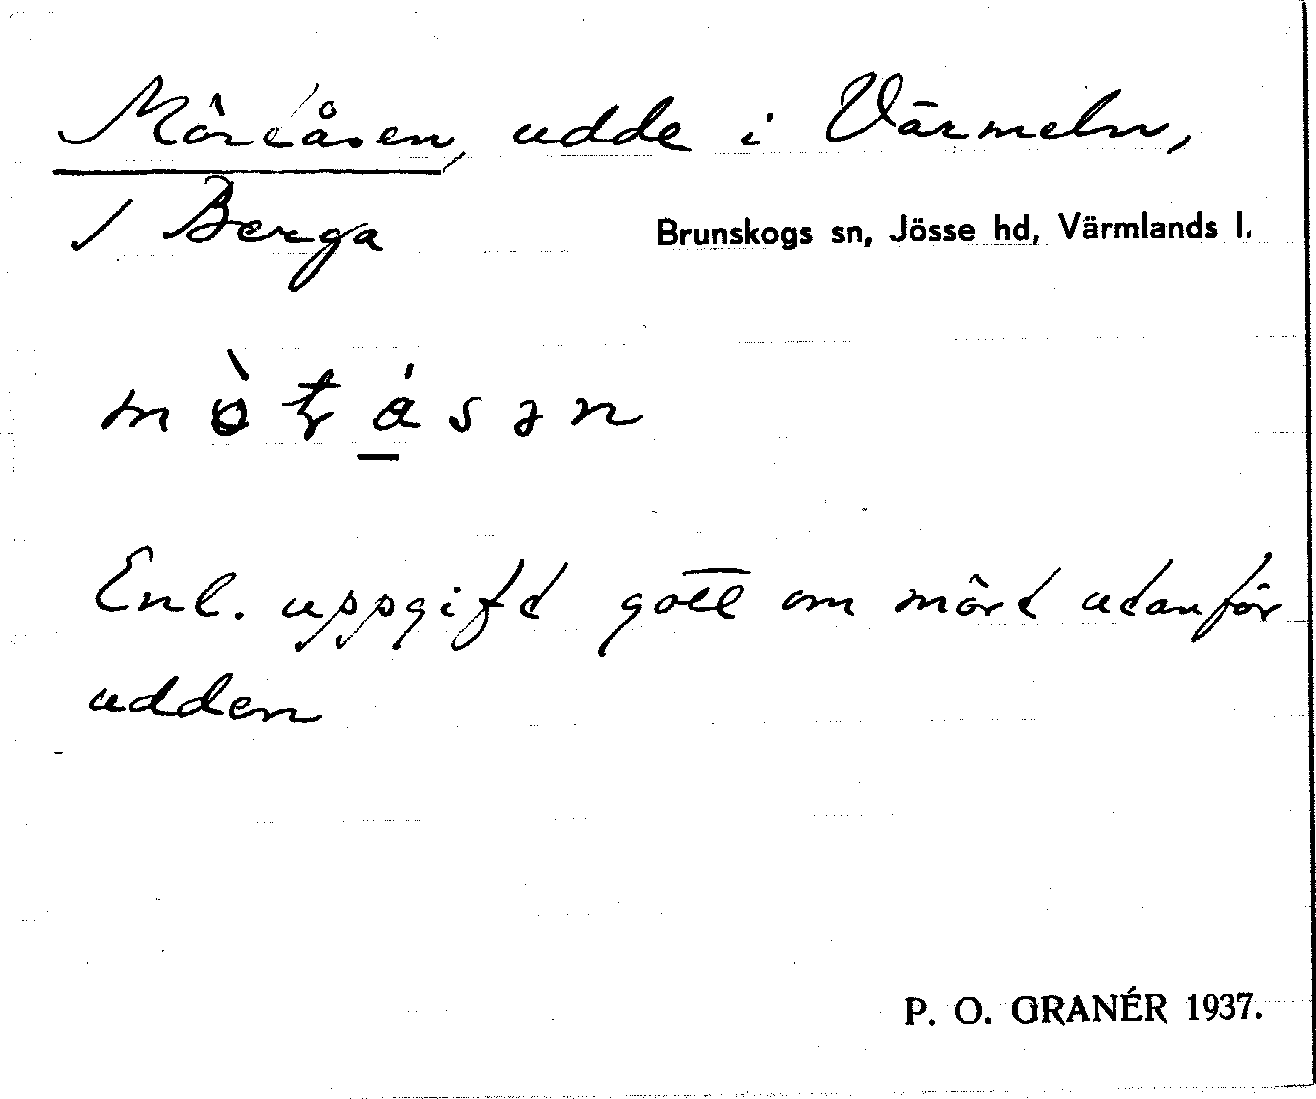 Mörtåsen, udde i Värmeln,
/ Berga Brunskogs sn, Jösse hd, Värmlands l.
Enl. uppgift gott om mört utanför
udden
P. O. GRANÉR 1937.